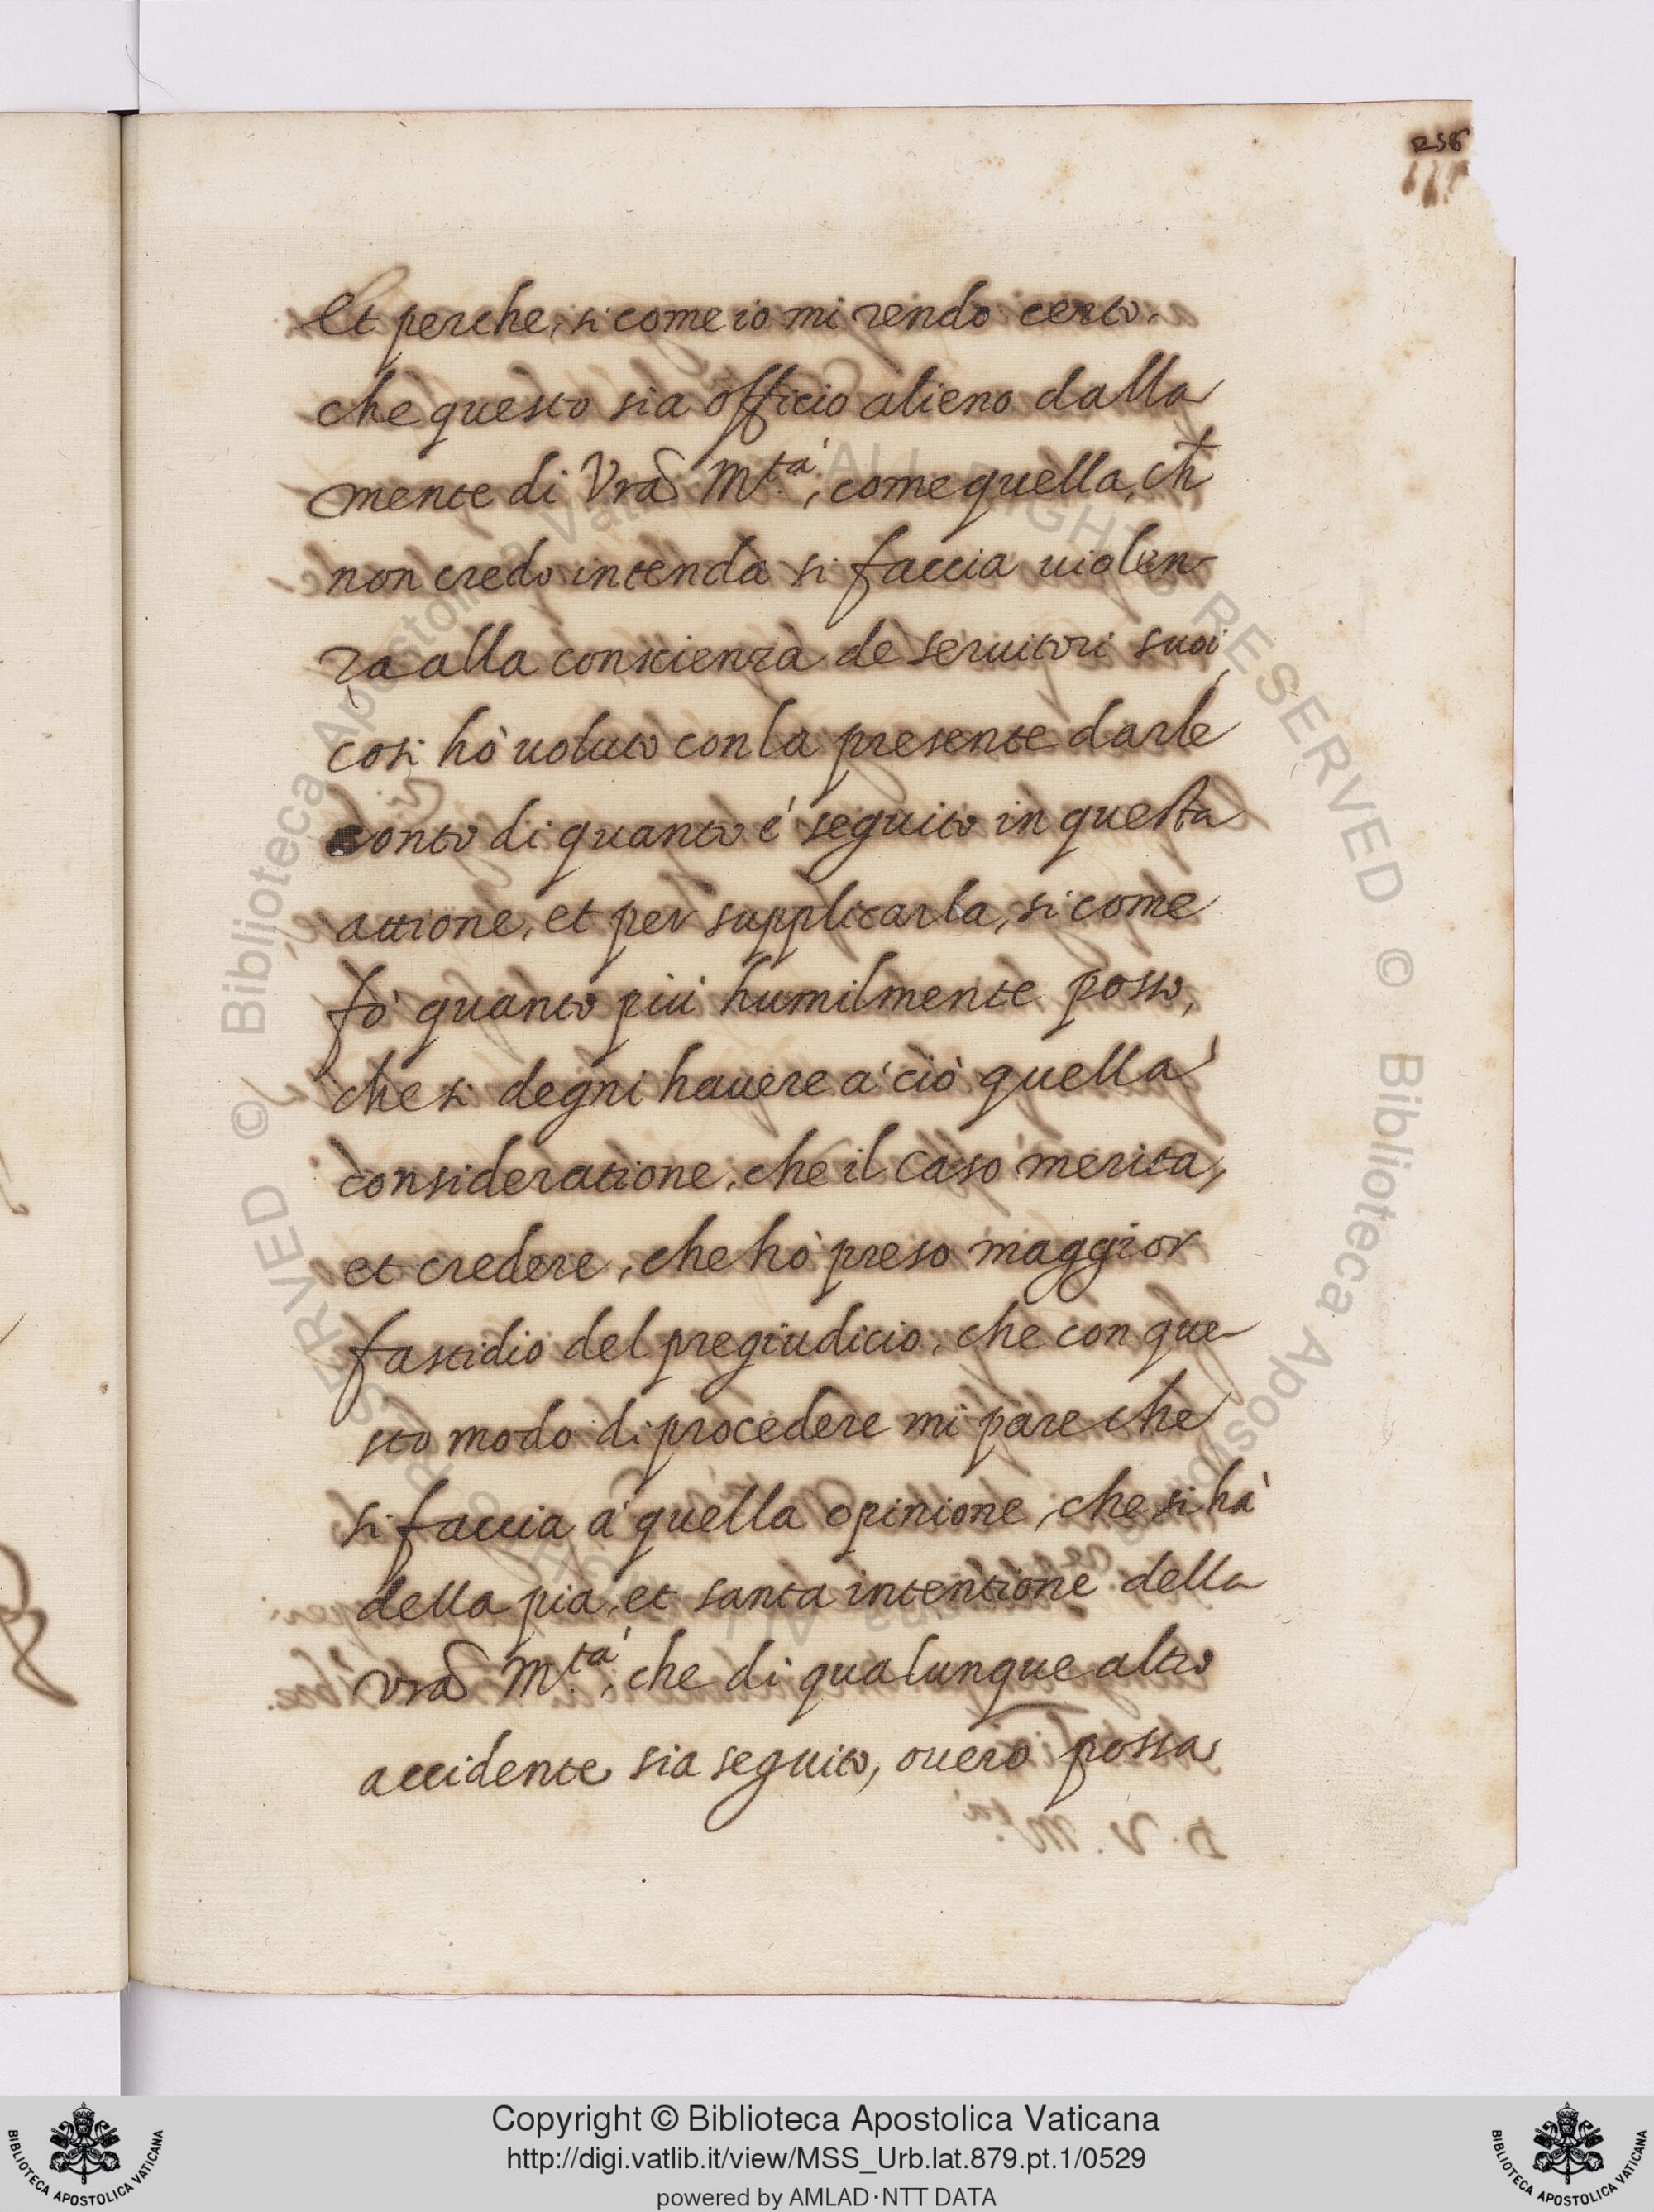 258
Et perche, si come io mi rendo certo,
che questo sia officio alieno dalla
mente di Vra M.tà, come quella, ch̃
non credo intenda si faccia uiolen-
za alla conscienza de seruitori suoi
cosi hò uoluto con la presente darle
conto di quanto é seguito in questa
attione, et per supplicarla, si come
fò quanto più humilmente posso,
che si degni hauere a' ciò quella
consideratione, che il caso merita,
et credere, che hò preso maggior
fastidio del pregiudicio, che con que-
sto modo di procedere mi pare che
si faccia a' quella opinione, che si hà
della pia, et santa intentione della
Vra M.tà, che di qualunque altro
accidente sia seguito, ouero possa
© Biblioteca Apostolica Vaticana ALL RIGHTS RESERVED
Copyright © Biblioteca Apostolica Vaticana
http://digi.vatlib.it/view/MSS_Urb.lat.879.pt.1/0529
powered by AMLAD·NTT DATA
BIBLIOTECA APOSTOLICA VATICANA
BIBLIOTECA APOSTOLICA VATICANA